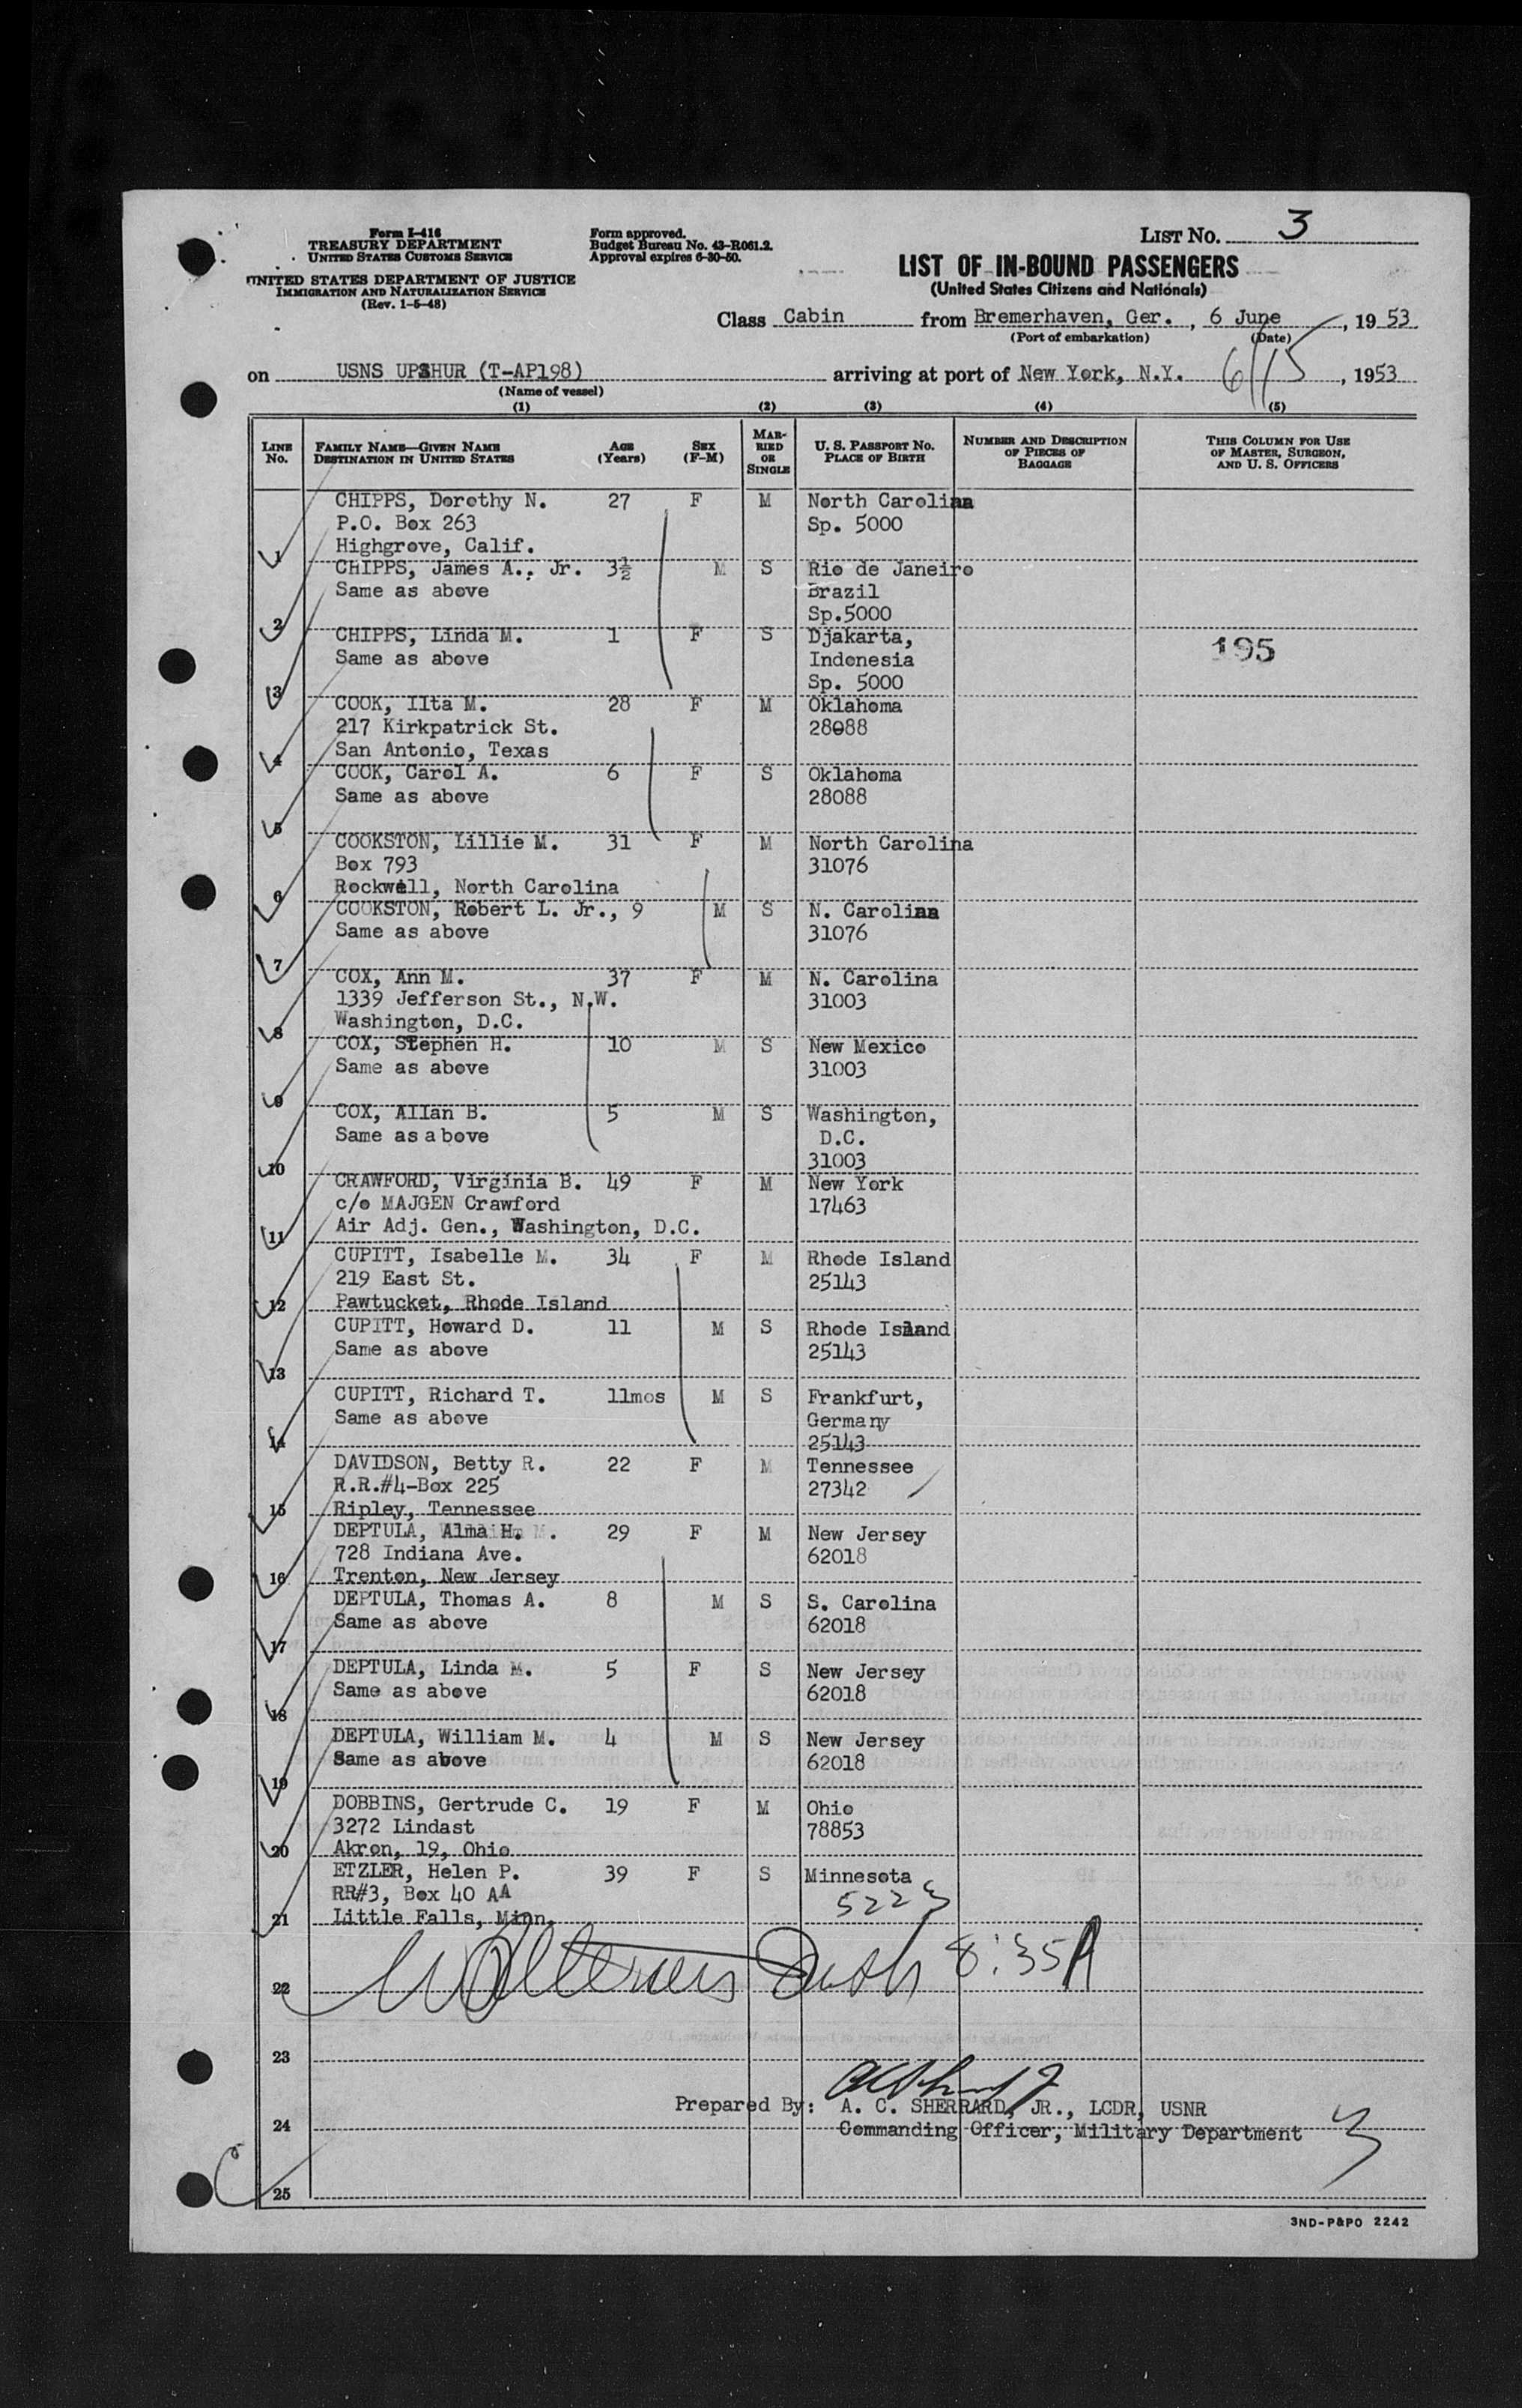 Form I-416
TREASURY DEPARTMENT
UNITED STATES CUSTOMS SERVICE
UNITED STATES DEPARTMENT OF JUSTICE
IMMIGRATION AND NATURALIZATION SERVICE
(Rev. 1-5-48)
Form approved.
Budget Bureau No. 43-R061.2.
Approval expires 6-30-50.
LIST NO. 3
LIST OF IN-BOUND PASSENGERS
(United States Citizens and Nationals)
Class Cabin from Bremerhaven, Ger., 6 June, 1953
(Port of embarkation) (Date)
on USNS UPSHUR (T-AP198) arriving at port of New York, N.Y. 6/15, 1953
(Name of vessel)
(1) (2) (3) (4) (5)
LINE NO. FAMILY NAME—GIVEN NAME DESTINATION IN UNITED STATES AGE (Years) SEX (F-M) MARRIED OR SINGLE U. S. PASSPORT NO. PLACE OF BIRTH NUMBER AND DESCRIPTION OF PIECES OF BAGGAGE THIS COLUMN FOR USE OF MASTER, SURGEON, AND U. S. OFFICERS
CHIPPS, Dorothy N. 27 F M North Carolina
P.O. Box 263 Sp. 5000
1 Highgrove, Calif.
CHIPPS, James A., Jr. 3½ M S Rio de Janeiro
Same as above Brazil
2 Sp.5000
CHIPPS, Linda M. 1 F S Djakarta,
Same as above Indonesia 195
3 Sp. 5000
COOK, Ilta M. 28 F M Oklahoma
217 Kirkpatrick St. 28088
4 San Antonio, Texas
COOK, Carol A. 6 F S Oklahoma
Same as above 28088
5
COOKSTON, Lillie M. 31 F M North Carolina
Box 793 31076
6 Rockwell, North Carolina
COOKSTON, Robert L. Jr., 9 M S N. Carolina
Same as above 31076
7
COX, Ann M. 37 F M N. Carolina
1339 Jefferson St., N.W. 31003
8 Washington, D.C.
COX, Stephen H. 10 M S New Mexico
Same as above 31003
9
COX, Allan B. 5 M S Washington,
Same as above D.C.
10 31003
CRAWFORD, Virginia B. 49 F M New York
c/o MAJGEN Crawford 17463
11 Air Adj. Gen., Washington, D.C.
CUPITT, Isabelle M. 34 F M Rhode Island
219 East St. 25143
12 Pawtucket, Rhode Island
CUPITT, Howard D. 11 M S Rhode Island
Same as above 25143
13
CUPITT, Richard T. 11mos M S Frankfurt,
Same as above Germany
14 25143
DAVIDSON, Betty R. 22 F M Tennessee
R.R.#4-Box 225 27342
15 Ripley, Tennessee
DEPTULA, Alma H. 29 F M New Jersey
728 Indiana Ave. 62018
16 Trenton, New Jersey
DEPTULA, Thomas A. 8 M S S. Carolina
Same as above 62018
17
DEPTULA, Linda M. 5 F S New Jersey
Same as above 62018
18
DEPTULA, William M. 4 M S New Jersey
Same as above 62018
19
DOBBINS, Gertrude C. 19 F M Ohio
3272 Lindast 78853
20 Akron, 19, Ohio
ETZLER, Helen P. 39 F S Minnesota
RR#3, Box 40 AA 5223
21 Little Falls, Minn.
8:35A
22
23
Prepared By: A. C. SHERRARD, JR., LCDR, USNR
24 Commanding Officer, Military Department 3
25
3ND-P&PO 2242